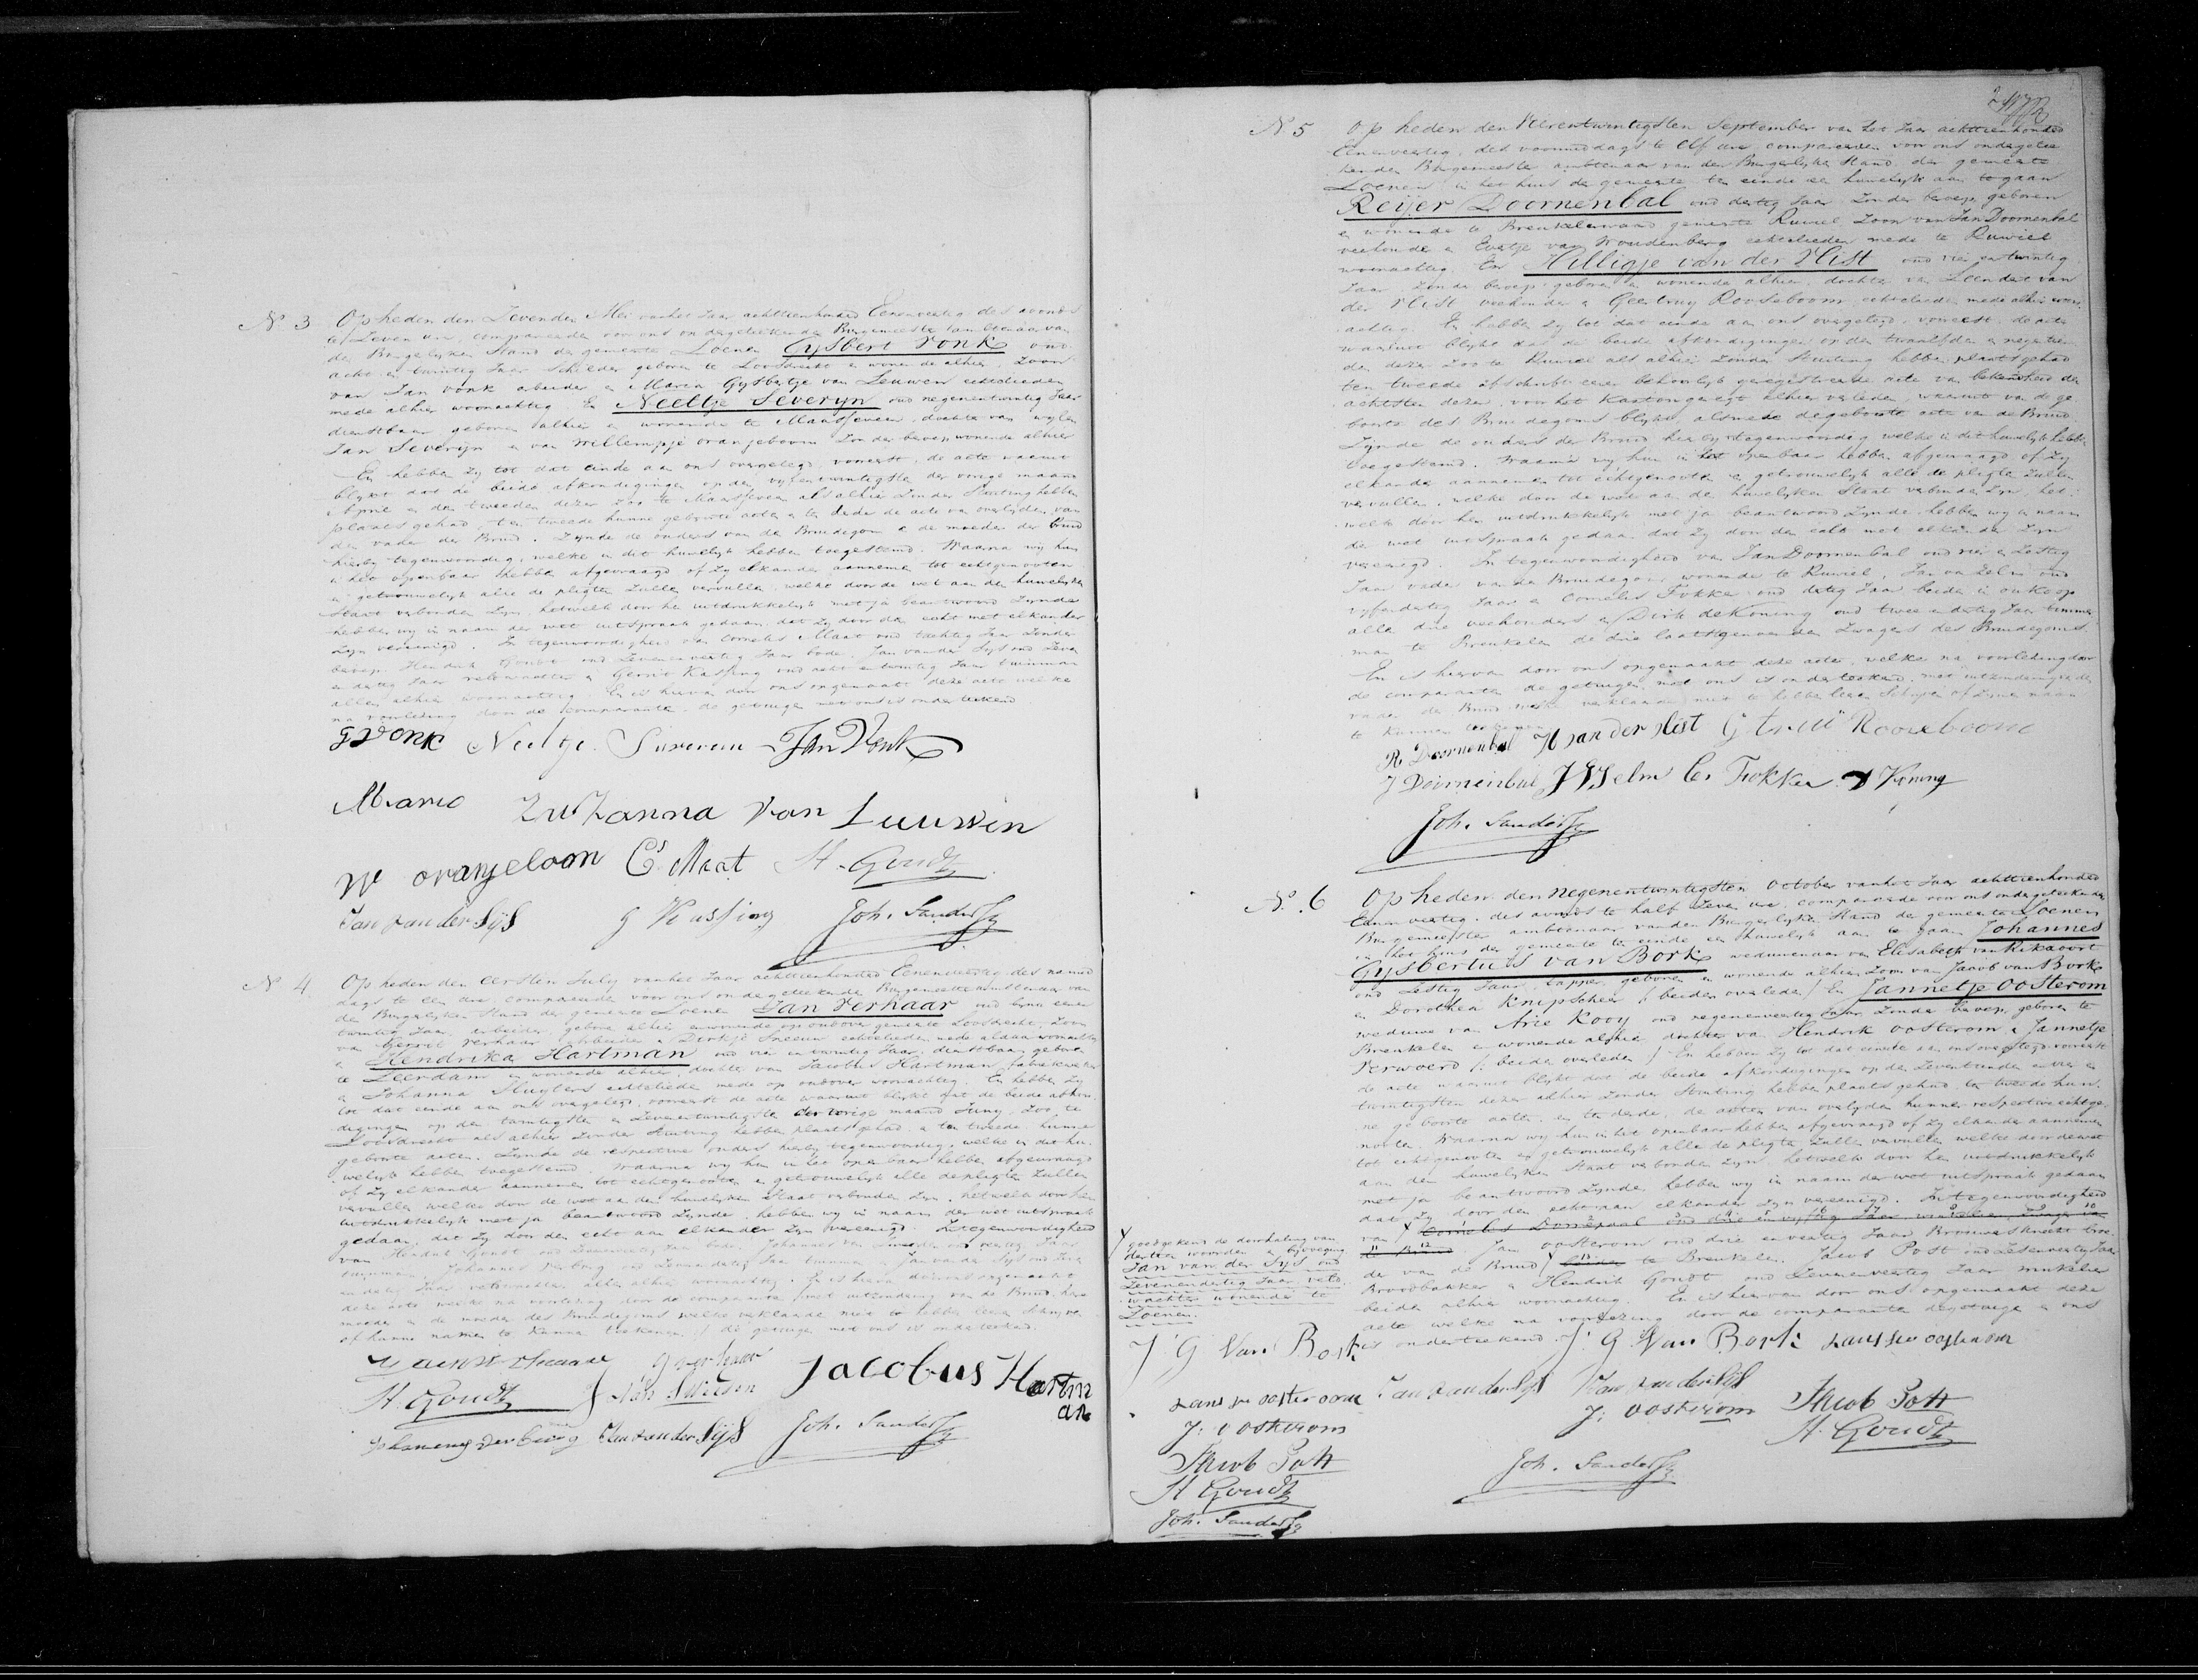 N 3 Op heden den Zevenden Mei van het Jaar achttienhonderd Eenenveertig des avonds
te Zeven ure, compareerden voor ons ondergeteekenden Burgemeester ambtenaar van
den Burgerlyken Stand der gemeente Loenen Gysbert Vonk oud
acht en twintig Jaar Schilder geboren te Loosdrecht en wonende alhier, Zoon
van Jan Vonk arbeider en Maria Gysbertje van Leuwen echtelieden
mede alhier woonachtig En Neeltje Severyn oud negenentwintig Jaar
dienstbaar geboren alhier en wonende te Maarsseveen, dochter van wylen
Jan Severyn en van Willempje Oranjeboom Zonder beroep wonende alhier
En hebben Zy tot dat einde aan ons overgelegd, vooreerst, de acte waaruit
blykt dat de beide afkondigingen op den vyfentwintigsten der vorige maand
April en den tweeden dezer Zoo te Maarsseveen als alhier Zonder Stuiting hebben
plaats gehad, ten tweede hunne geboorte acten en ten derde de acte van overlyden van
den vader der Bruid. Zynde de ouders van den Bruidegom en de moeder der Bruid
hierby tegenwoordig, welke in dit huwelyk hebben toegestemd. Waarna wy hun
in het openbaar hebben afgevraagd of Zy elkander aannemen tot echtgenooten
en getrouwelyk alle de pligten Zullen vervullen, welke door de wet aan den huwelyken
Staat verbonden Zyn, hetwelk door hen uitdrukkelyk met ja beantwoord Zynde
hebben wy in naam der wet uitspraak gedaan, dat Zy door den echt met elkander
Zyn vereenigd. In tegenwoordigheid van Cornelis Maat oud tachtig Jaar Zonder
beroep Hendrik Goudt oud Zevenenveertig Jaar bode, Jan van der Sys oud Zeven
en dertig Jaar veldwachter en Gerrit Kussing oud acht en twintig Jaar timmerman
allen alhier woonachtig. En is hiervan door ons opgemaakt deze acte welke
na voorlezing door de comparanten de getuigen met ons is onderteekend
G Vonk Neeltje Severein Jan Vonk
Maria Zuzanna van Leuuwen
W oranjeboom Cs Maat H. Goudt
Jan van der Sijs G Kussing Joh. Sanderson
N 4 Op heden den eersten July van het Jaar achttienhonderd Eenenveertig des namid
dags te een ure, compareerden voor ons ondergeteekende Burgemeester ambtenaar van
den Burgerlyken Stand der gemeente Loenen Jan Verhaar oud
twintig Jaar, arbeider, geboren alhier en wonende op oudover gemeente Loosdrecht, Zoon
van Gerrit Verhaar arbeider en Dirkje Sneeuw echtelieden mede aldaar woonachtig
en Hendrika Hartman oud vier en twintig Jaar, dienstbaar geboren
te Leerdam en wonende alhier, dochter van Jacobus Hartman
en Johanna Sluyters echtelieden mede op oudover woonachtig. En hebben Zy
tot dat einde aan ons overgelegd, vooreerst de acte waaruit blykt dat de beide afkon
digingen op den twintigsten en Zevenentwintigsten der vorige maand Juny, Zoo te
Loosdrecht als alhier Zonder Stuiting hebben plaats gehad, en ten tweede hunne
geboorte acten. Zynde de respective ouders hierby tegenwoordig, welke in dit hu
welyk hebben toegestemd. Waarna wy hen in het openbaar hebben afgevraagd
of Zy elkander aannemen tot echtgenooten en getrouwelyk alle de pligten Zullen
vervullen welke door de wet aan den huwelyken Staat verbonden Zyn, hetwelk door hen
uitdrukkelyk met ja beantwoord Zynde, hebben wy in naam der wet uitspraak
gedaan, dat Zy door den echt aan elkander Zyn vereenigd. In tegenwoordigheid
van Hendrik Goudt oud Zevenenveertig Jaar bode, Johannes van oud veertig Jaar
timmerman, Johannes Verburg oud Jaar timmerman en Jan van der Sijs oud Zeven
en dertig Jaar veldwachter, allen alhier woonachtig. En is hiervan door ons opgemaakt
deze acte welke na voorlezing door de comparanten (met uitzondering van de Bruid, hare
moeder en de moeder des Bruidegoms welke verklaarden niet te hebben leeren Schryven
of hunne namen te kunnen teekenen,) de getuigen met ons is onderteekend.
G Verhaar Jacobus Hartm
an
H. Goudt J Van
Johannes Verburg Jan van der Sijs Joh. Sanderson
N 5 Op heden den Vierentwintigsten September van het Jaar achttienhonderd
Eenenveertig, des voormiddags te Elf ure, compareerden voor ons ondergetee
kenden Burgemeester ambtenaar van den Burgerlyken Stand der gemeente
Loenen in het huis der gemeente ten einde een huwelyk aan te gaan
Reijer Doornenbal oud dertig Jaar Zonder beroep, geboren
en wonende te Breukelerwaard gemeente Ruwiel Zoon van Jan Doornenbal
veehouder en Evertje van Woudenberg echtelieden mede te Ruwiel
woonachtig En Hilligje van der Hist oud vier en twintig
Jaar, Zonder beroep geboren en wonende alhier, dochter van Leendert van
der Hist veehouder en Geertruy Rooseboom echtelieden mede alhier woon
achtig. En hebben Zy tot dat einde aan ons overgelegd, vooreerst de acte
waaruit blykt dat de beide afkondigingen op den twaalfden en negentien
den dezer Zoo te Ruwiel als alhier Zonder Stuiting hebben plaats gehad
ten tweede afschrift eener behoorlyk geregistreerde acte van bekendheid den
achtsten dezer, voor het Kantongeregt alhier verleden, waaruit van de ge
boorte des Bruidegoms blykt, alsmede de geboorte acte van de Bruid
Zynde de ouders der Bruid hierby tegenwoordig welke in dit huwelyk hebben
toegestemd. Waarna wy hun in het openbaar hebben afgevraagd of Zy
elkander aannemen tot echtgenooten en getrouwelyk alle de pligten Zullen
vervullen, welke door de wet aan den huwelyken Staat verbonden Zyn, het
welk door hen uitdrukkelyk met ja beantwoord Zynde, hebben wy in naam
der wet uitspraak gedaan dat Zy door den echt met elkander Zyn
vereenigd. In tegenwoordigheid van Jan Doornenbal oud vier en Zestig
Jaar vader van den Bruidegom wonende te Ruwiel, Jan van Zelm oud
vyfendertig Jaar en Cornelis Fokker oud dertig Jaar beiden in oukoop
alle drie veehouders en Dirk de Koning oud twee en dertig Jaar timmer
man te Breukelen de drie laatstgenoemden Zwagers des Bruidegoms.
En is hiervan door ons opgemaakt deze acte, welke na voorlezing door
de comparanten de getuigen, met ons is onderteekend, met uitzondering van den
vader der Bruid welke verklaarde niet te hebben leeren Schryven of Zynen naam
te kunnen teekenen
R Doornenbal H van der Hist G Rooseboom
J Doornenbal J V Zelm Cs Fokker D Koning
Joh. Sanderson
N. 6 Op heden den negenentwintigsten October van het Jaar achttienhonderd
Eenenveertig, des avonds te half Zeven ure, compareerden voor ons ondergeteekenden
Burgemeester ambtenaar van den Burgerlyken Stand der gemeente Loenen
in het huis der gemeente ten einde een huwelyk aan te gaan Johannes
Gysbertus van Bork weduwenaar van Elisabeth van Rikxoort
oud Zestig Jaar, tapper, geboren en wonende alhier Zoon van Jacob van Bork
en Dorothea Knipscheer (beiden overleden) En Jannetje Oosterom
weduwe van Arie Kooy oud negenenveertig Jaar Zonder beroep, geboren te
Breukelen en wonende alhier dochter van Hendrik Oosterom en Jannetje
Verwoerd (beiden overleden) En hebben Zy tot dat einde aan ons overgelegd vooreerst
de acte waaruit blykt dat de beide afkondigingen op den Zeventienden en vier en
twintigsten dezer alhier Zonder Stuiting hebben plaats gehad, ten tweede hun
ne geboorte acten, en ten derde, de acten van overlyden hunner respective echtge
nooten. Waarna wy hun in het openbaar hebben afgevraagd of Zy elkander aannemen
tot echtgenooten en getrouwelyk alle de pligten Zullen vervullen welke door de wet
aan den huwelyken Staat verbonden Zyn hetwelk door hen uitdrukkelyk
met ja beantwoord Zynde, hebben wy in naam der wet uitspraak gedaan
dat Zy door den echt aan elkander Zyn vereenigd. In tegenwoordigheid
van Cornelis oud drie en vyftig Jaar
de Bruid Jan Oosterom oud drie en veertig Jaar Brouwersknecht broe
der van de Bruid te Breukelen Jacob Post oud Zesenveertig Jaar
Broodbakker en Hendrik Goudt oud Zevenenveertig Jaar winkelier
beiden alhier woonachtig. En is hiervan door ons opgemaakt deze
acte welke na voorlezing door de comparanten de getuigen en ons
is onderteekend. J. G Van Bork
goedgekeurd de doorhaling van
dertien woorden en byvoeging
Jan van der Sys oud
Zevenendertig Jaar veld
wachter wonende te
Loenen
J G Van Bork
Jan van der Sijs
J: Oosterom Jacob Post
H. Goudt
Joh. Sanderson
J: Oosterom
Jacob Post
H Goudt
Joh. Sanderson